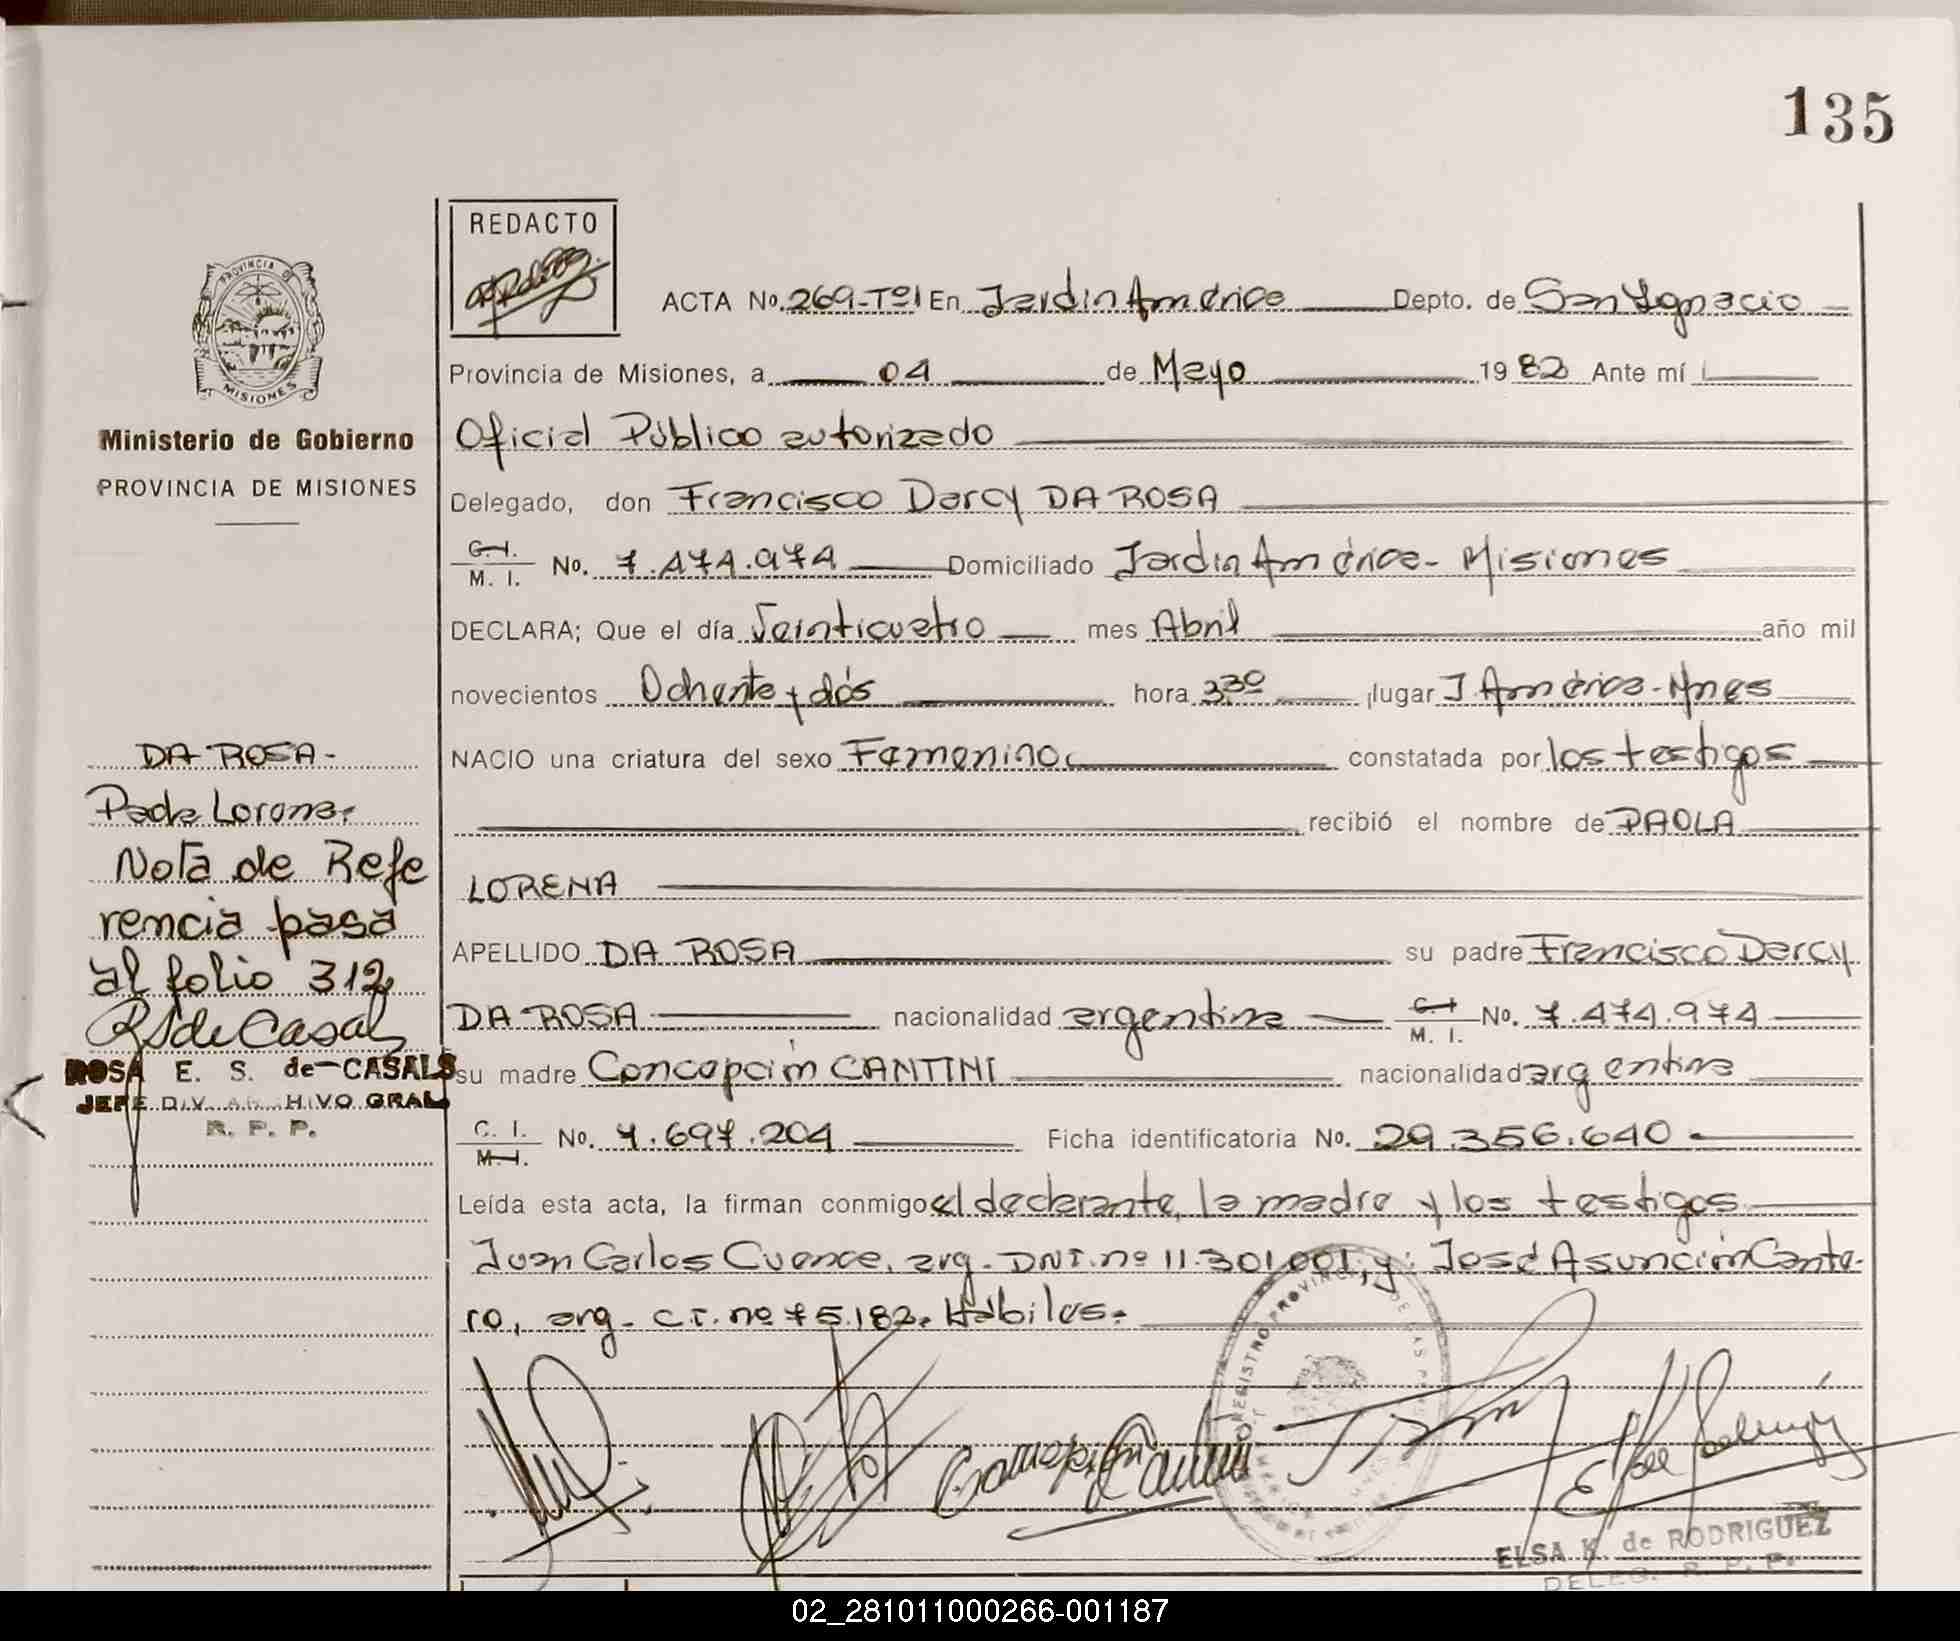 135
REDACTO
ACTA No. 269-Tº1 En Jardin América Depto. de San Ignacio
Provincia de Misiones, a 04 de Mayo 1982 Ante mí
Oficial Público autorizado
Delegado, don Francisco Darcy DA ROSA
C. I. M. I. No. 7.474.974 Domiciliado Jardin América - Misiones
DECLARA; Que el día Veinticuatro mes Abril año mil
novecientos Ochenta y dós hora 3,30 lugar J América - Mnes
NACIO una criatura del sexo Femenino constatada por los testigos
recibió el nombre de PAOLA
LORENA
APELLIDO DA ROSA su padre Francisco Darcy
DA ROSA nacionalidad argentina C. I. M. I. No. 7.474.974
su madre Concepción CANTINI nacionalidad argentina
C. I. M. I. No. 4.697.204 Ficha identificatoria No. 29.356.640
Leída esta acta, la firman conmigo el declarante, la madre y los testigos
Juan Carlos Cuence, arg. DNI. nº 11.301.001, y: José Asunción Cante-
ro, arg. C.I. nº 75.182. Hábiles.
PROVINCIA DE
MISIONES
Ministerio de Gobierno
PROVINCIA DE MISIONES
DA ROSA -
Paola Lorena.
Nota de Refe
rencia pasa
al folio 312
RSdeCasals
ROSA E. S. de CASALS
JEFE DIV. ARCHIVO GRAL
R. P. P.
Concepción Cantini
ELSA K. de RODRIGUEZ
DELEG. R. P. P.
02_281011000266-001187